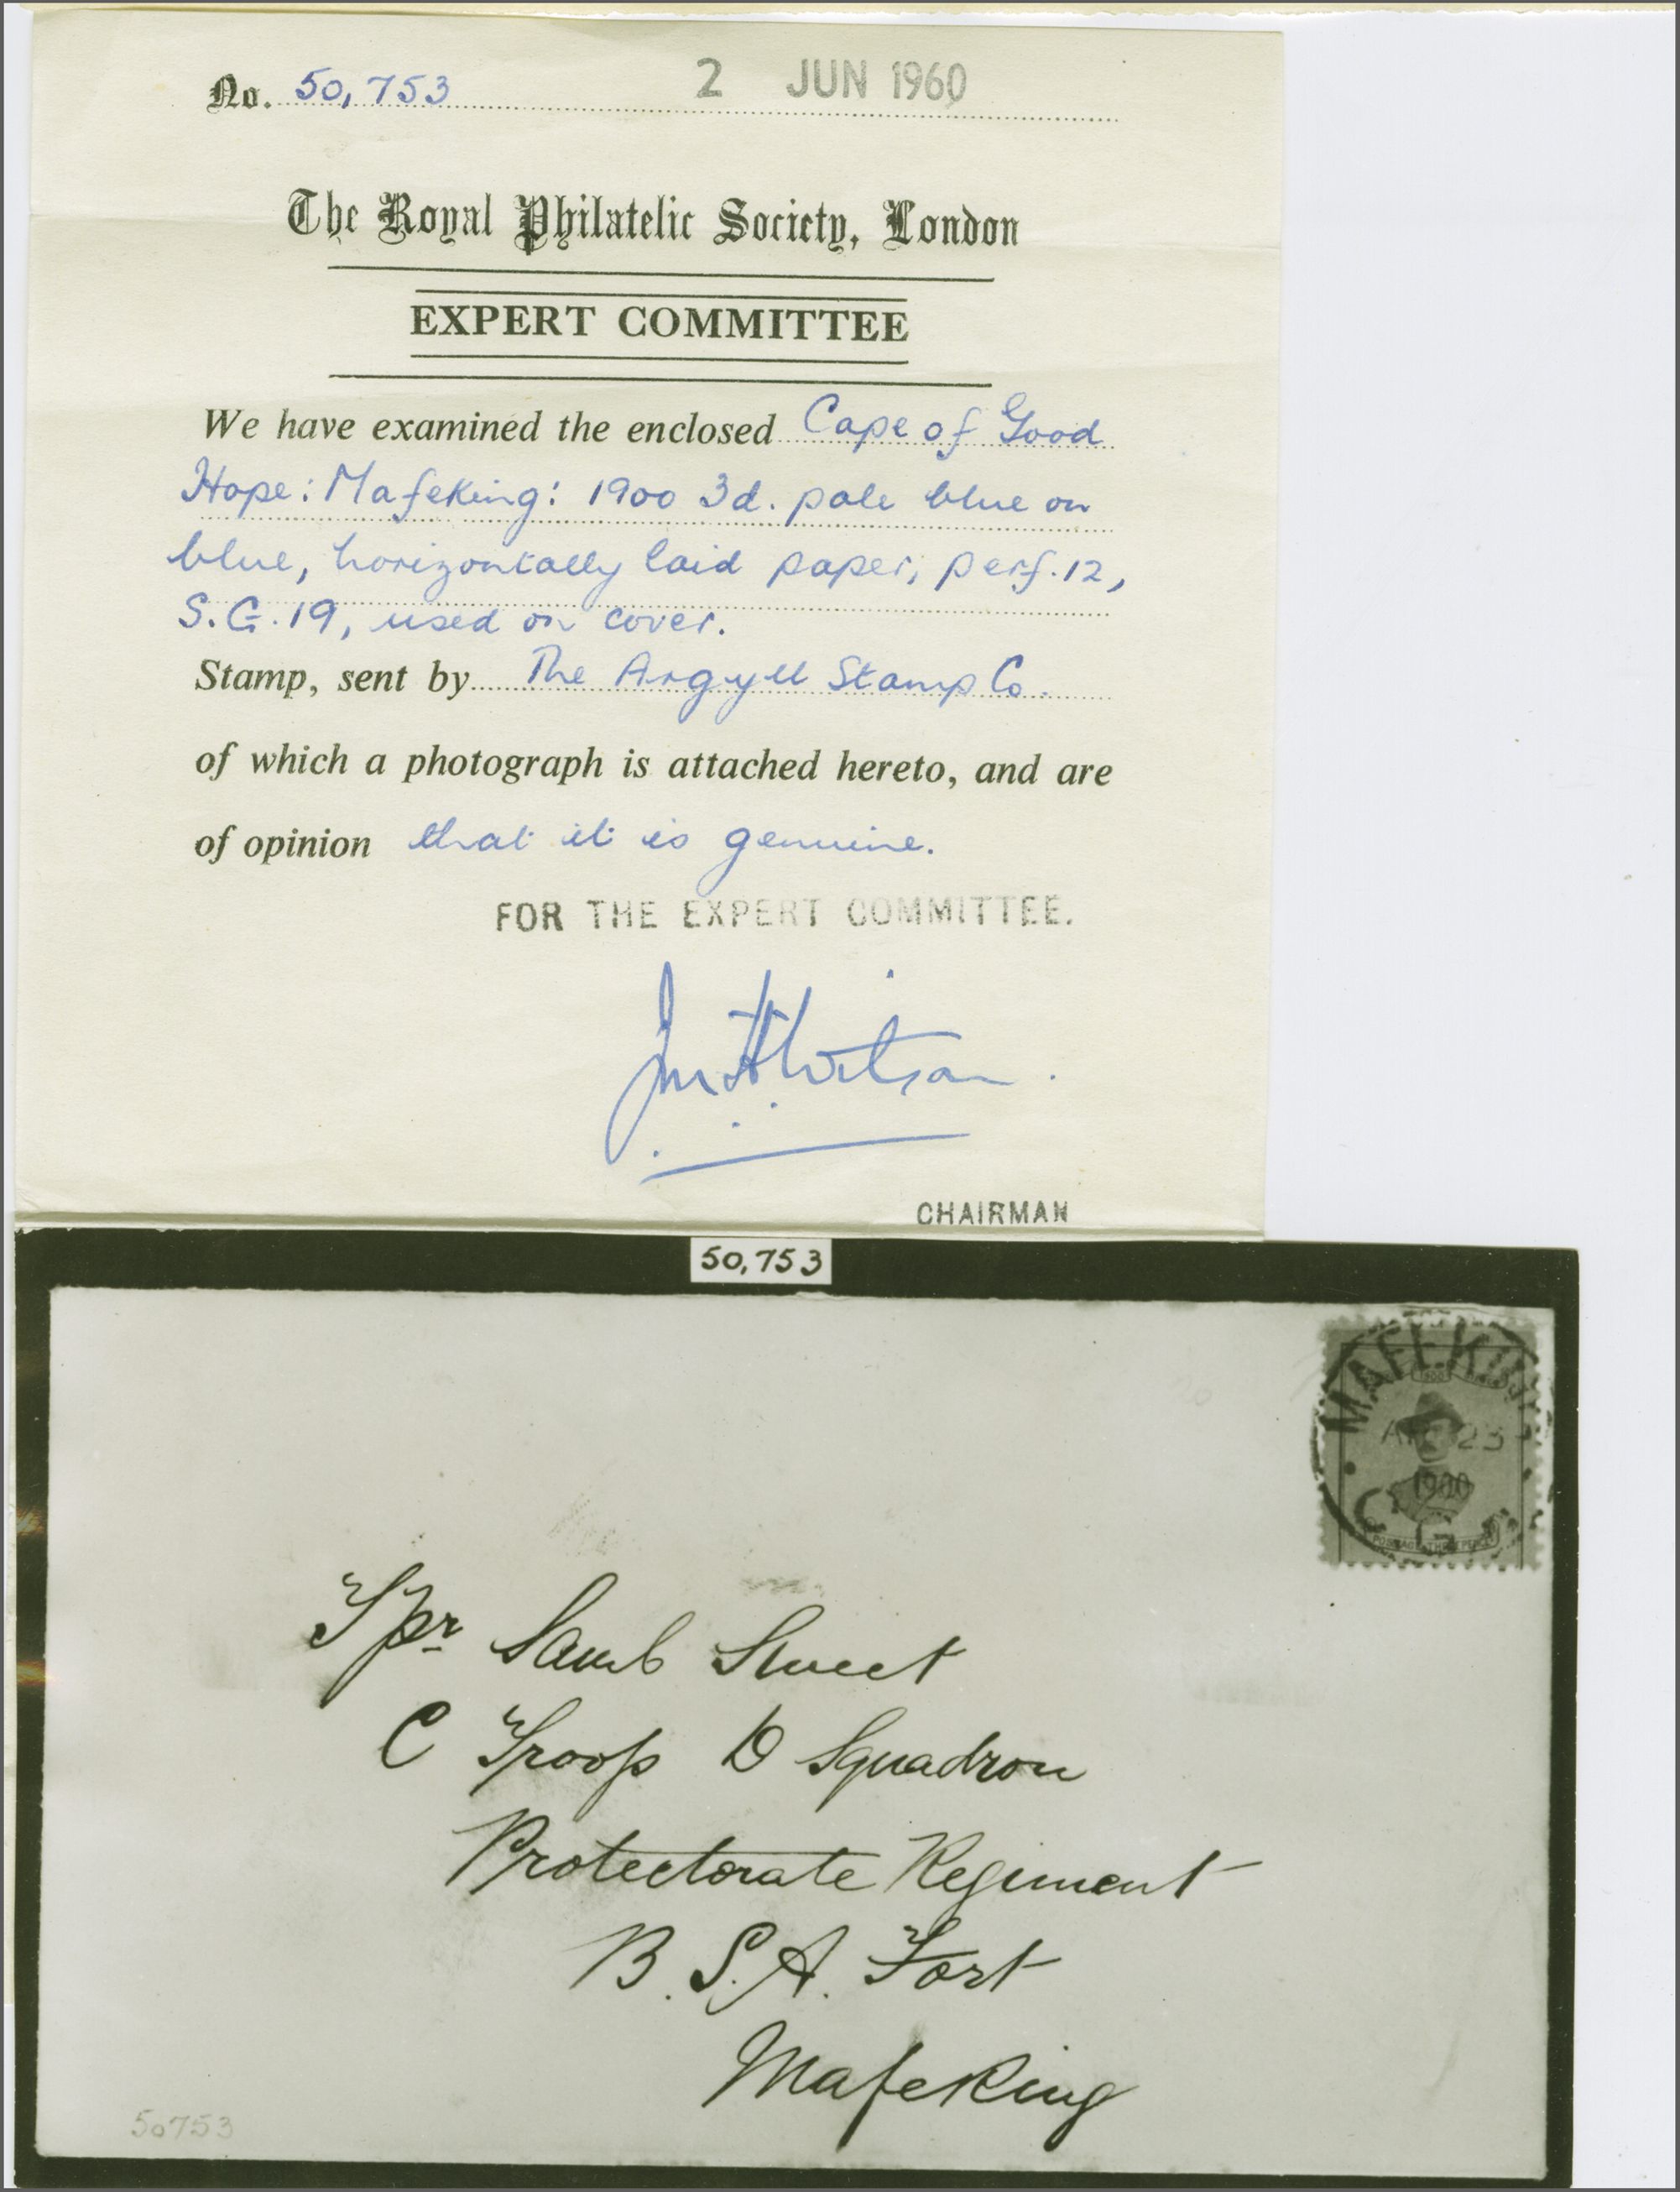 No. 50,753 2 JUN 1960
The Royal Philatelic Society, London
EXPERT COMMITTEE
We have examined the enclosed Cape of Good
Hope: Mafeking: 1900 3d. pale blue on
blue, horizontally laid paper, perf. 12,
S.G. 19, used on cover.
Stamp, sent by The Argyll Stamp Co.
of which a photograph is attached hereto, and are
of opinion that it is genuine.
FOR THE EXPERT COMMITTEE.
CHAIRMAN
50,753
MAFEKING
1900
23
1900
C. G. H.
POSTAGE THREE PENCE
Tpr Saml Sweet
C Troop D Squadron
Protectorate Regiment
B.S.A. Fort
Mafeking
50753